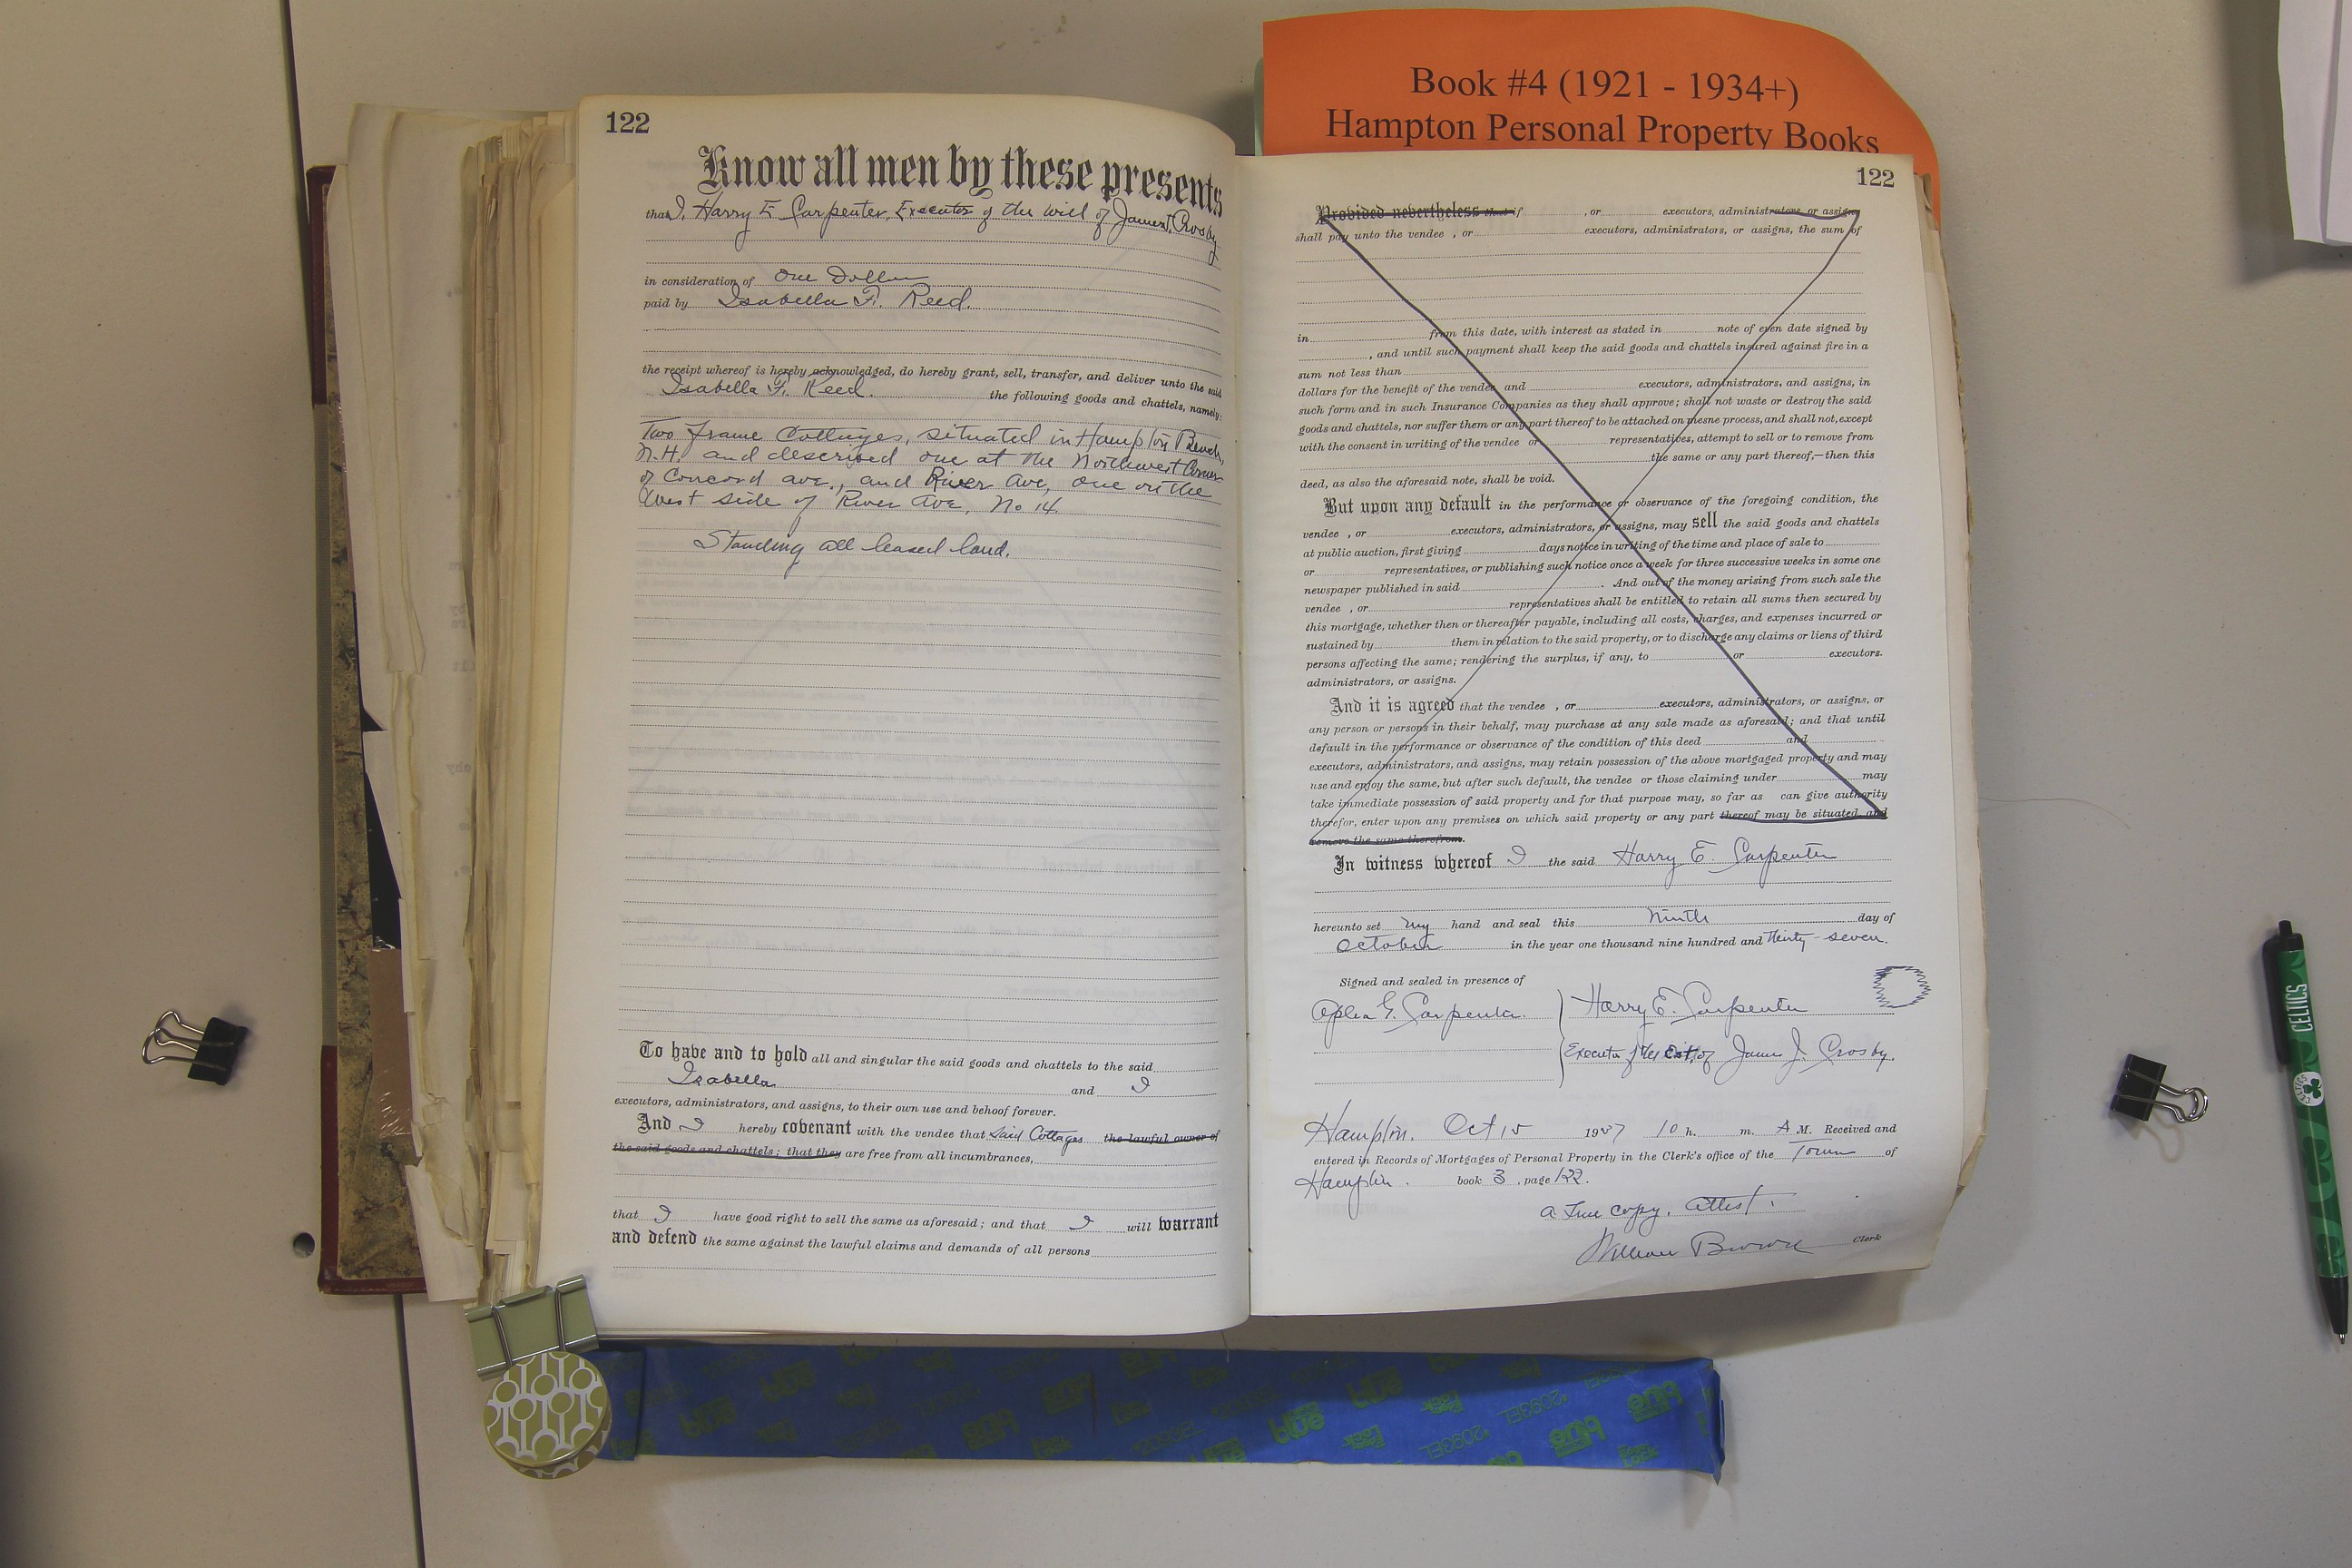 Book #4 (1921 - 1934+)
Hampton Personal Property Books
122
Know all men by these presents
that I, Harry E Carpenter, Executor of the will of James J. Crosby
in consideration of One Dollar
paid by Isabella F. Reed.
the receipt whereof is hereby acknowledged, do hereby grant, sell, transfer, and deliver unto the said
Isabella F. Reed. the following goods and chattels, namely:
Two frame Cottages, situated in Hampton Beach,
N.H. and described one at the Northwest Corner
of Concord ave., and River Ave, one on the
West side of River Ave, No 14.
Standing all leased land.
To have and to hold all and singular the said goods and chattels to the said
Isabella and I
executors, administrators, and assigns, to their own use and behoof forever.
And I hereby covenant with the vendee that said Cottages the lawful owner of
the said goods and chattels; that they are free from all incumbrances,
that I have good right to sell the same as aforesaid; and that I will warrant
and defend the same against the lawful claims and demands of all persons
122
Provided nevertheless that if , or executors, administrators or assigns
shall pay unto the vendee , or executors, administrators, or assigns, the sum of
in from this date, with interest as stated in note of even date signed by
, and until such payment shall keep the said goods and chattels insured against fire in a
sum not less than
dollars for the benefit of the vendee and executors, administrators, and assigns, in
such form and in such Insurance Companies as they shall approve; shall not waste or destroy the said
goods and chattels, nor suffer them or any part thereof to be attached on mesne process, and shall not, except
with the consent in writing of the vendee or representatives, attempt to sell or to remove from
the same or any part thereof,—then this
deed, as also the aforesaid note, shall be void.
But upon any default in the performance or observance of the foregoing condition, the
vendee , or executors, administrators, or assigns, may sell the said goods and chattels
at public auction, first giving days notice in writing of the time and place of sale to
or representatives, or publishing such notice once a week for three successive weeks in some one
newspaper published in said . And out of the money arising from such sale the
vendee , or representatives shall be entitled to retain all sums then secured by
this mortgage, whether then or thereafter payable, including all costs, charges, and expenses incurred or
sustained by them in relation to the said property, or to discharge any claims or liens of third
persons affecting the same; rendering the surplus, if any, to or executors.
administrators, or assigns.
And it is agreed that the vendee , or executors, administrators, or assigns, or
any person or persons in their behalf, may purchase at any sale made as aforesaid; and that until
default in the performance or observance of the condition of this deed and
executors, administrators, and assigns, may retain possession of the above mortgaged property and may
use and enjoy the same, but after such default, the vendee or those claiming under may
take immediate possession of said property and for that purpose may, so far as can give authority
therefor, enter upon any premises on which said property or any part thereof may be situated, and
remove the same therefrom.
In witness whereof I the said Harry E. Carpenter
hereunto set my hand and seal this ninth day of
October in the year one thousand nine hundred and thirty-seven.
Signed and sealed in presence of
G. Carpenter. Harry E. Carpenter
Executor of the Est. of James J. Crosby.
Hampton. Oct 15 1937 10 h. m. A M. Received and
entered in Records of Mortgages of Personal Property in the Clerk's office of the Town of
Hampton. book 3 , page 122.
A True copy. Attest.
William Brown Clerk
CELTICS